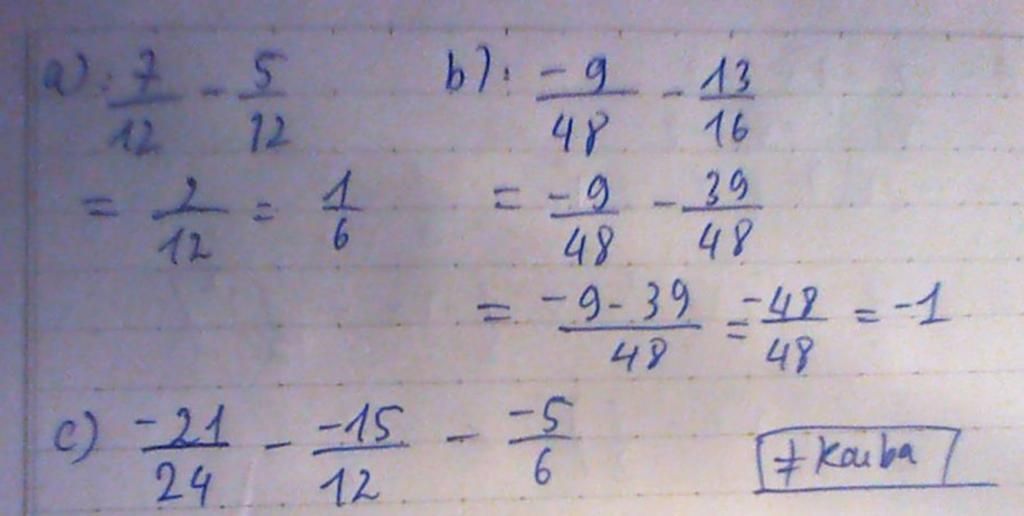 a): 7/12 - 5/12
= 2/12 = 1/6
b): -9/48 - 13/16
= -9/48 - 39/48
= -9-39/48 = -48/48 = -1
c) -21/24 - -15/12 - -5/6
≠ Kouba